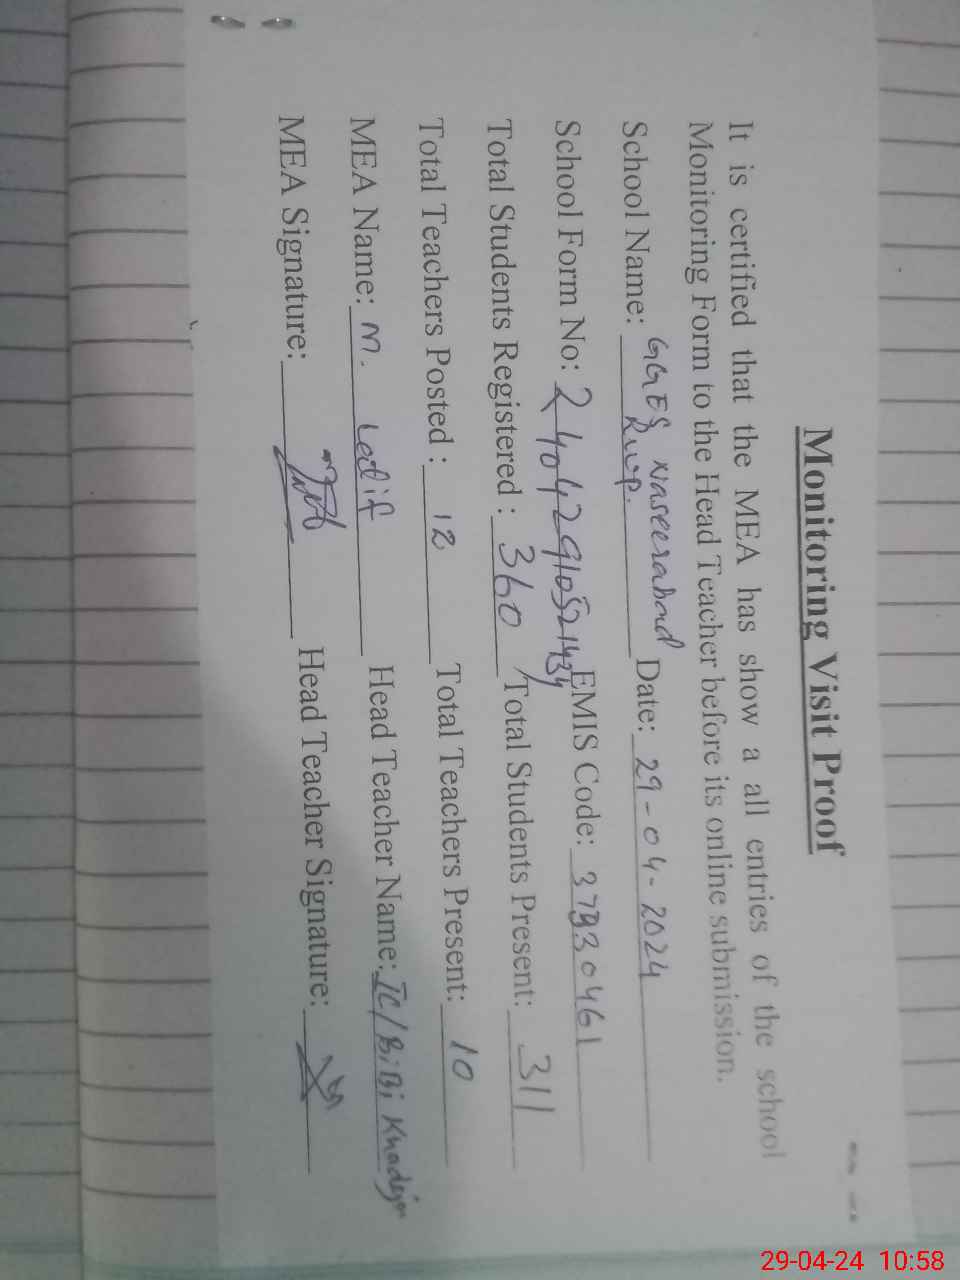 Monitoring Visit Proof
It is certified that the MEA has show a all entries of the school
Monitoring Form to the Head Teacher before its online submission.
School Name: GGES Naseerabad Rwp. Date: 29-04-2024
School Form No: 24042910521434 EMIS Code: 37330461
Total Students Registered : 360 Total Students Present: 311
Total Teachers Posted : 12 Total Teachers Present: 10
MEA Name: M. Latif Head Teacher Name: IC/BiBi Khadija
MEA Signature: Head Teacher Signature:
29-04-24 10:58